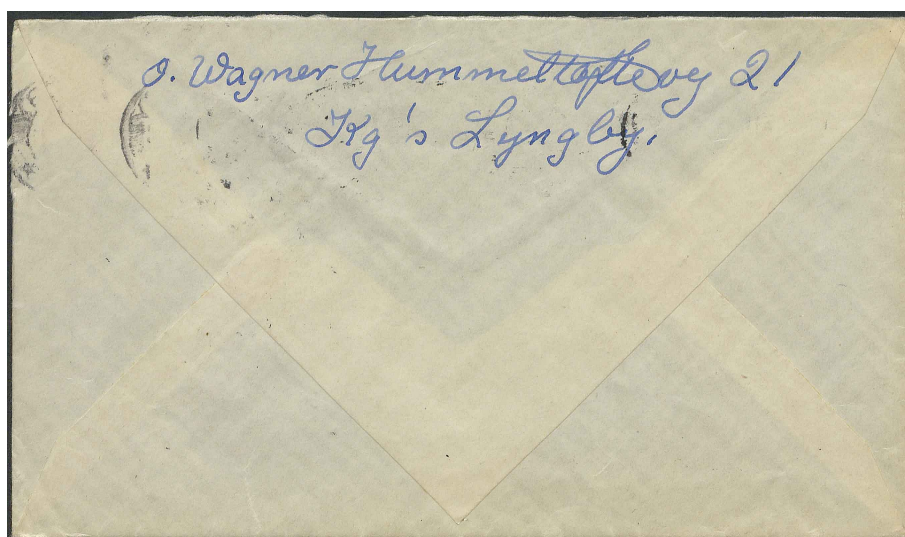 O. Wagner Hummeltoftevej 21
Kg's Lyngby.